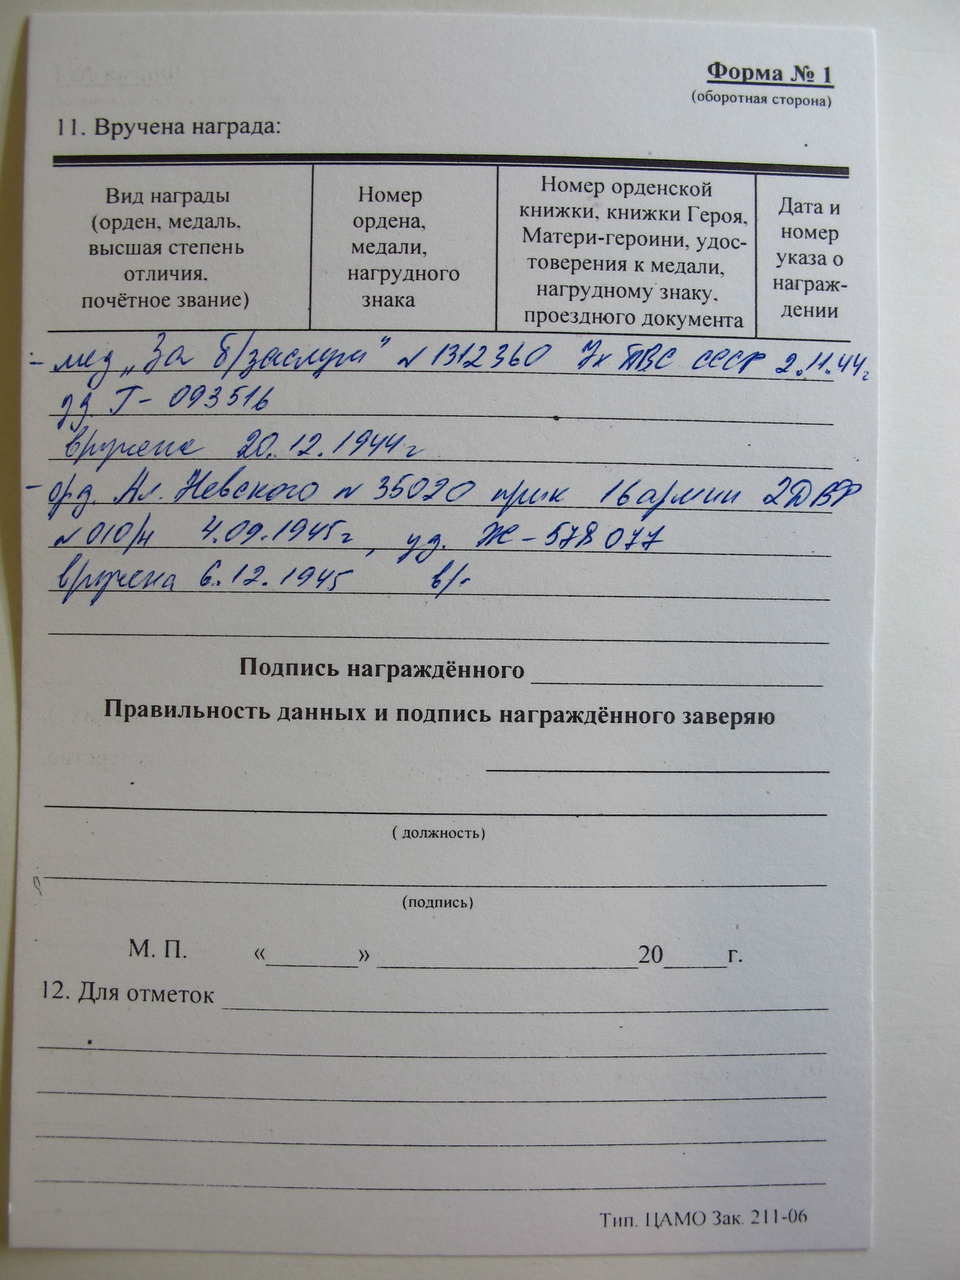 Форма № 1
(оборотная сторона)
11. Вручена награда:
Вид награды
(орден, медаль,
высшая степень
отличия,
почётное звание)
Номер
ордена,
медали,
нагрудного
знака
Номер орденской
книжки, книжки Героя,
Матери-героини, удос-
товерения к медали,
нагрудному знаку,
проездного документа
Дата и
номер
указа о
награж-
дении
- мед „За б/заслуги" № 1312360 Ук ПВС СССР 2.11.44г
уд. Г- 093516
вручена 20.12.1944г
- орд. Ал. Невского № 35020 прик 16 армии 2ДВФ
№ 010/н 4.09.1945г, уд. Ж-578077
вручена 6.12.1945 в/-
Подпись награждённого
Правильность данных и подпись награждённого заверяю
( должность)
(подпись)
М. П. «______» ______ 20____г.
12. Для отметок
Тип. ЦАМО Зак. 211-06